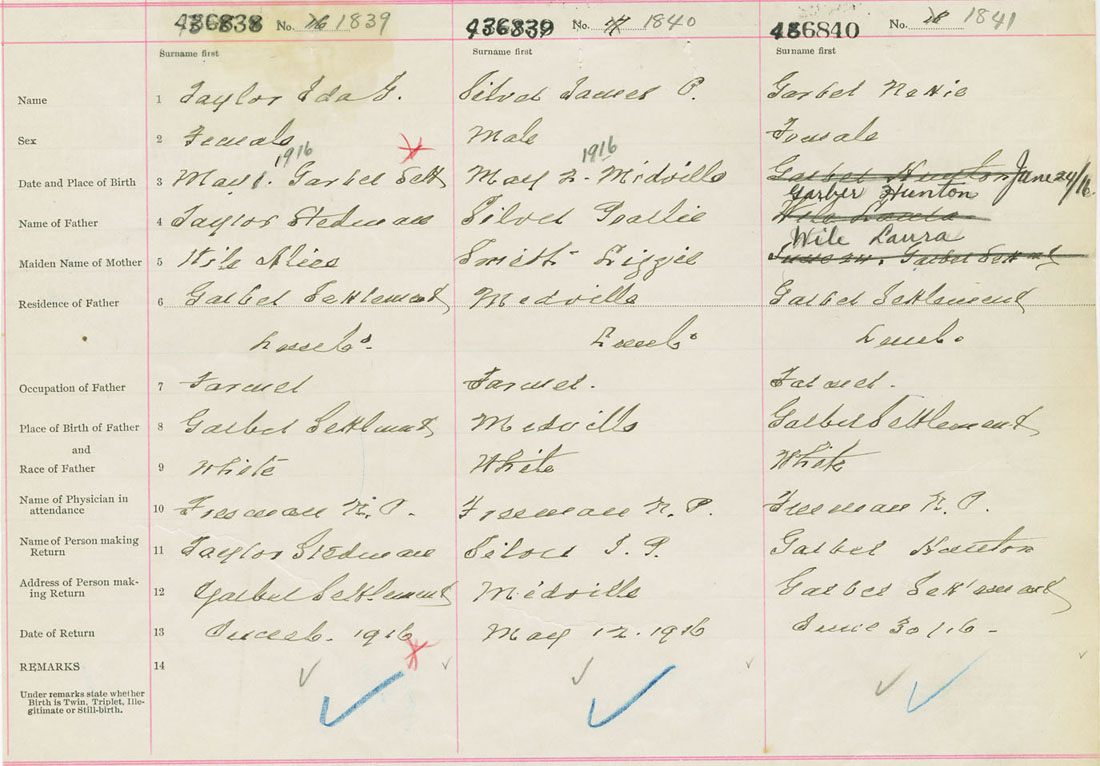 436838 No. 16 1839 436839 No. 17 1840 436840 No. 18 1841
Surname first Surname first Surname first
Name 1 Taylor Ida G. Silver James P. Garber Nettie
Sex 2 Female Male Female
1916 1916
Date and Place of Birth 3 May 1. Garber Sett May 2. Midville Garber Hunton June 24/16
Garber Hunton
Name of Father 4 Taylor Stedman Silver Wile Laura
Wile Laura
Maiden Name of Mother 5 Wile Alice Smith Lizzie June 24. Garber Settlement
Residence of Father 6 Garber Settlement Midville Garber Settlement
Lunenb. Co. Lunenb. Co. Lunenb. Co.
Occupation of Father 7 Farmer Farmer. Farmer.
Place of Birth of Father 8 Garber Settlement Midville Garber Settlement
and
Race of Father 9 White White White
Name of Physician in
attendance 10 Freeman N. P. Freeman N. P. Freeman N. P.
Name of Person making
Return 11 Taylor Stedman Silver J. P. Garber Hunton
Address of Person mak-
ing Return 12 Garber Settlement Midville Garber Settlement
Date of Return 13 June 6. 1916 May 12. 1916 June 30/16 -
REMARKS 14
Under remarks state whether
Birth is Twin, Triplet, Ille-
gitimate or Still-birth.